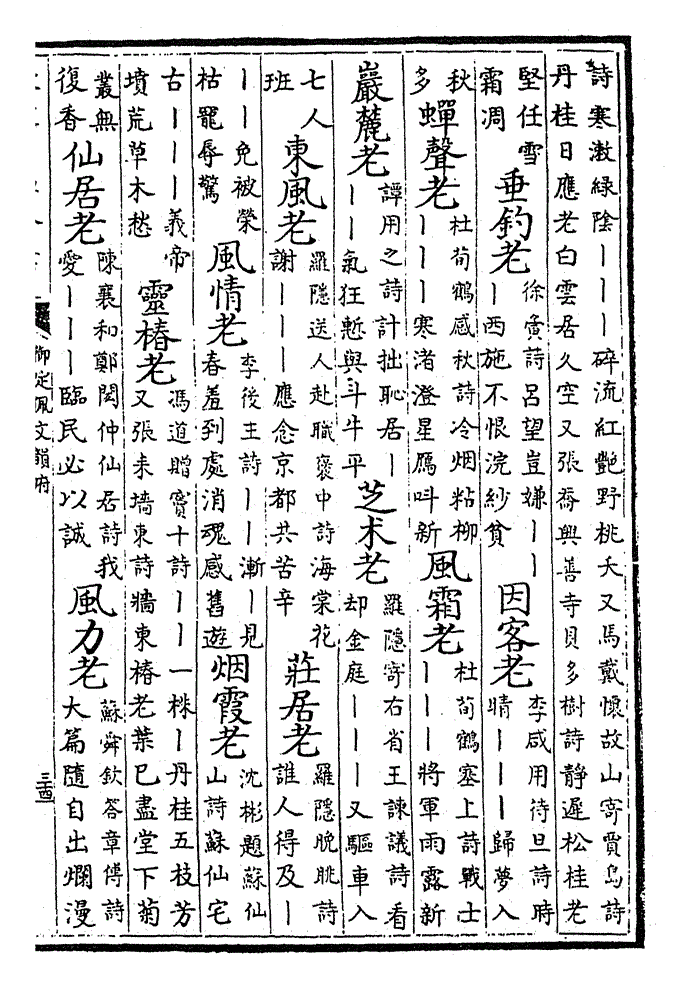 詩寒潄綠陰｜｜｜碎流紅艷野桃夭又馬戴懷故山寄賈島詩
丹桂日應老白雲居久空又張喬興善寺貝多樹詩靜遲松桂老
堅任雪霜凋垂釣老徐夤詩呂望豈嫌｜｜｜西施不恨浣紗貧因客老李咸用待旦詩時晴｜｜｜歸夢入
秋多蟬聲老杜荀鶴感秋詩冷烟粘柳｜｜｜寒渚澄星鴈呌新風霜老杜荀鶴塞上詩戰士｜｜｜將軍雨露新
巖麓老譚用之詩計拙恥居｜｜｜氣狂慙與斗牛平芝术老羅隱寄右省王諫議詩看却金庭｜｜｜又驅車入
七人班東風老羅隱送人赴職襃中詩海棠花謝｜｜｜應念京都共苦辛莊居老羅隱晚眺詩誰人得及｜
｜｜免被榮枯罷辱驚風情老李後主詩｜｜漸｜見春羞到處消魂感舊遊烟霞老沈彬題蘇仙山詩蘇仙宅
古｜｜｜義帝墳荒草木愁靈椿老馮道贈竇十詩｜｜一株｜丹桂五枝芳又張耒墻東詩牆東椿老葉已盡堂下菊
叢無復香仙居老陳襄和鄭閎仲仙居詩我愛｜｜｜臨民必以誠風力老蘇舜欽答章傅詩大篇隨自出爛漫
御定佩文韻府
三十四